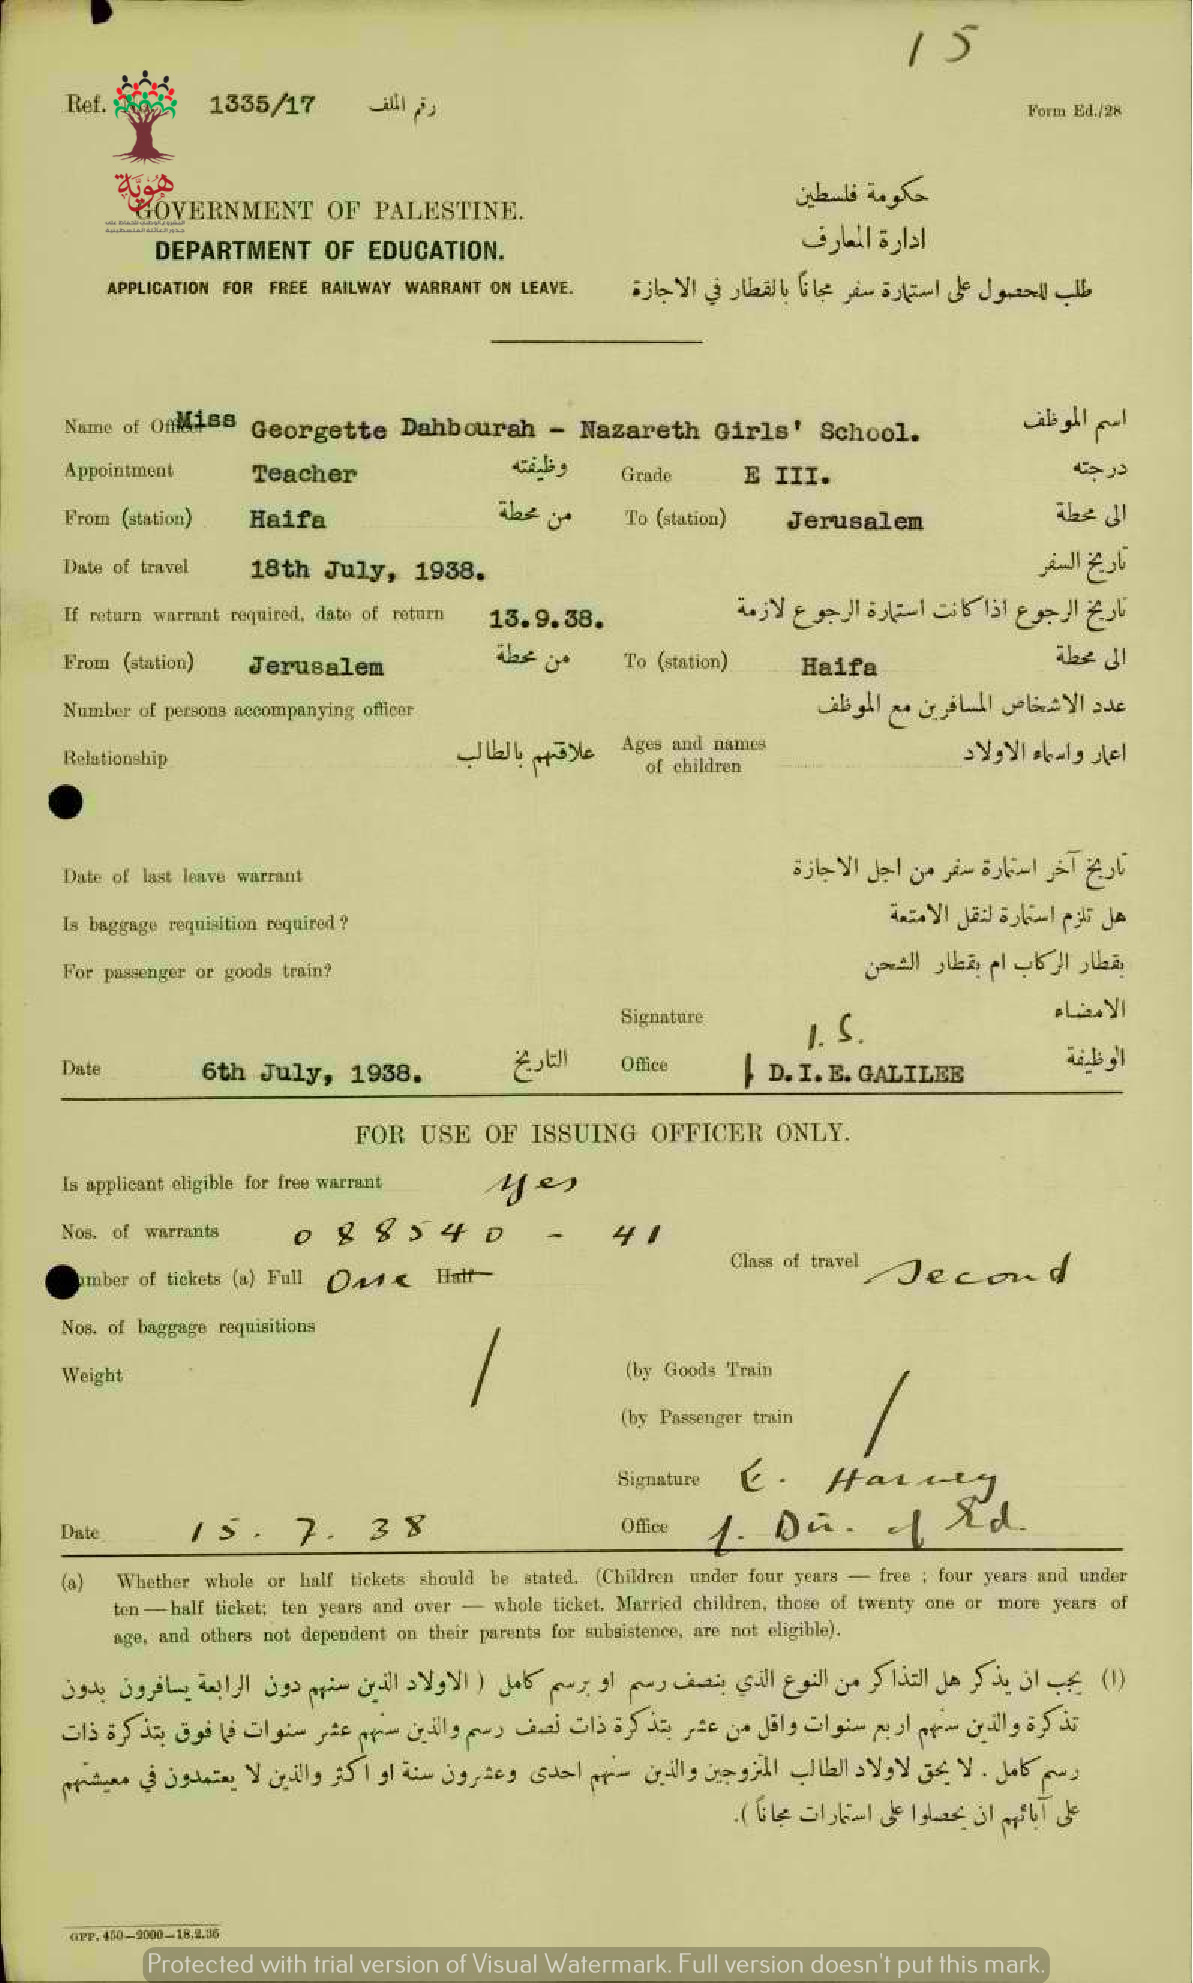 15
Ref. No. 1335/17 رقم الملف
Form Ed./28
هوية
GOVERNMENT OF PALESTINE.
حكومة فلسطين
DEPARTMENT OF EDUCATION.
ادارة المعارف
APPLICATION FOR FREE RAILWAY WARRANT ON LEAVE.
طلب للحصول على استمارة سفر مجاناً بالقطار في الاجازة
Name of Officer Miss Georgette Dahbourah - Nazareth Girls' School. اسم الموظف
Appointment Teacher وظيفته Grade E III. درجته
From (station) Haifa من محطة To (station) Jerusalem الى محطة
Date of travel 18th July, 1938. تاريخ السفر
If return warrant required, date of return 13.9.38. تاريخ الرجوع اذا كانت استمارة الرجوع لازمة
From (station) Jerusalem من محطة To (station) Haifa الى محطة
Number of persons accompanying officer عدد الاشخاص المسافرين مع الموظف
Relationship علاقتهم بالطالب Ages and names of children اعمار واسماء الاولاد
Date of last leave warrant تاريخ آخر استمارة سفر من اجل الاجازة
Is baggage requisition required? هل تلزم استمارة لنقل الامتعة
For passenger or goods train? بقطار الركاب ام بقطار الشحن
Signature I.S. الامضاء
Date 6th July, 1938. التاريخ Office D.I.E. GALILEE الوظيفة
FOR USE OF ISSUING OFFICER ONLY.
Is applicant eligible for free warrant yes
Nos. of warrants 088540 - 41
Number of tickets (a) Full One Half Class of travel Second
Nos. of baggage requisitions
Weight / (by Goods Train
(by Passenger train /
Signature E. Harvey
Date 15.7.38 Office f. Dir. of Ed.
(a) Whether whole or half tickets should be stated. (Children under four years — free ; four years and under
ten — half ticket; ten years and over — whole ticket. Married children, those of twenty one or more years of
age, and others not dependent on their parents for subsistence, are not eligible).
(١) يجب ان يذكر هل التذاكر من النوع الذي بنصف رسم او برسم كامل ( الاولاد الذين سنهم دون الرابعة يسافرون بدون
تذكرة والذين سنهم اربع سنوات واقل من عشر بتذكرة ذات نصف رسم والذين سنهم عشر سنوات فما فوق بتذكرة ذات
رسم كامل . لا يحق لاولاد الطالب المتزوجين والذين سنهم احدى وعشرون سنة او اكثر والذين لا يعتمدون في معيشتهم
على آبائهم ان يحصلوا على استمارات مجاناً ).
GPP. 450—2000—18.2.36
Protected with trial version of Visual Watermark. Full version doesn't put this mark.